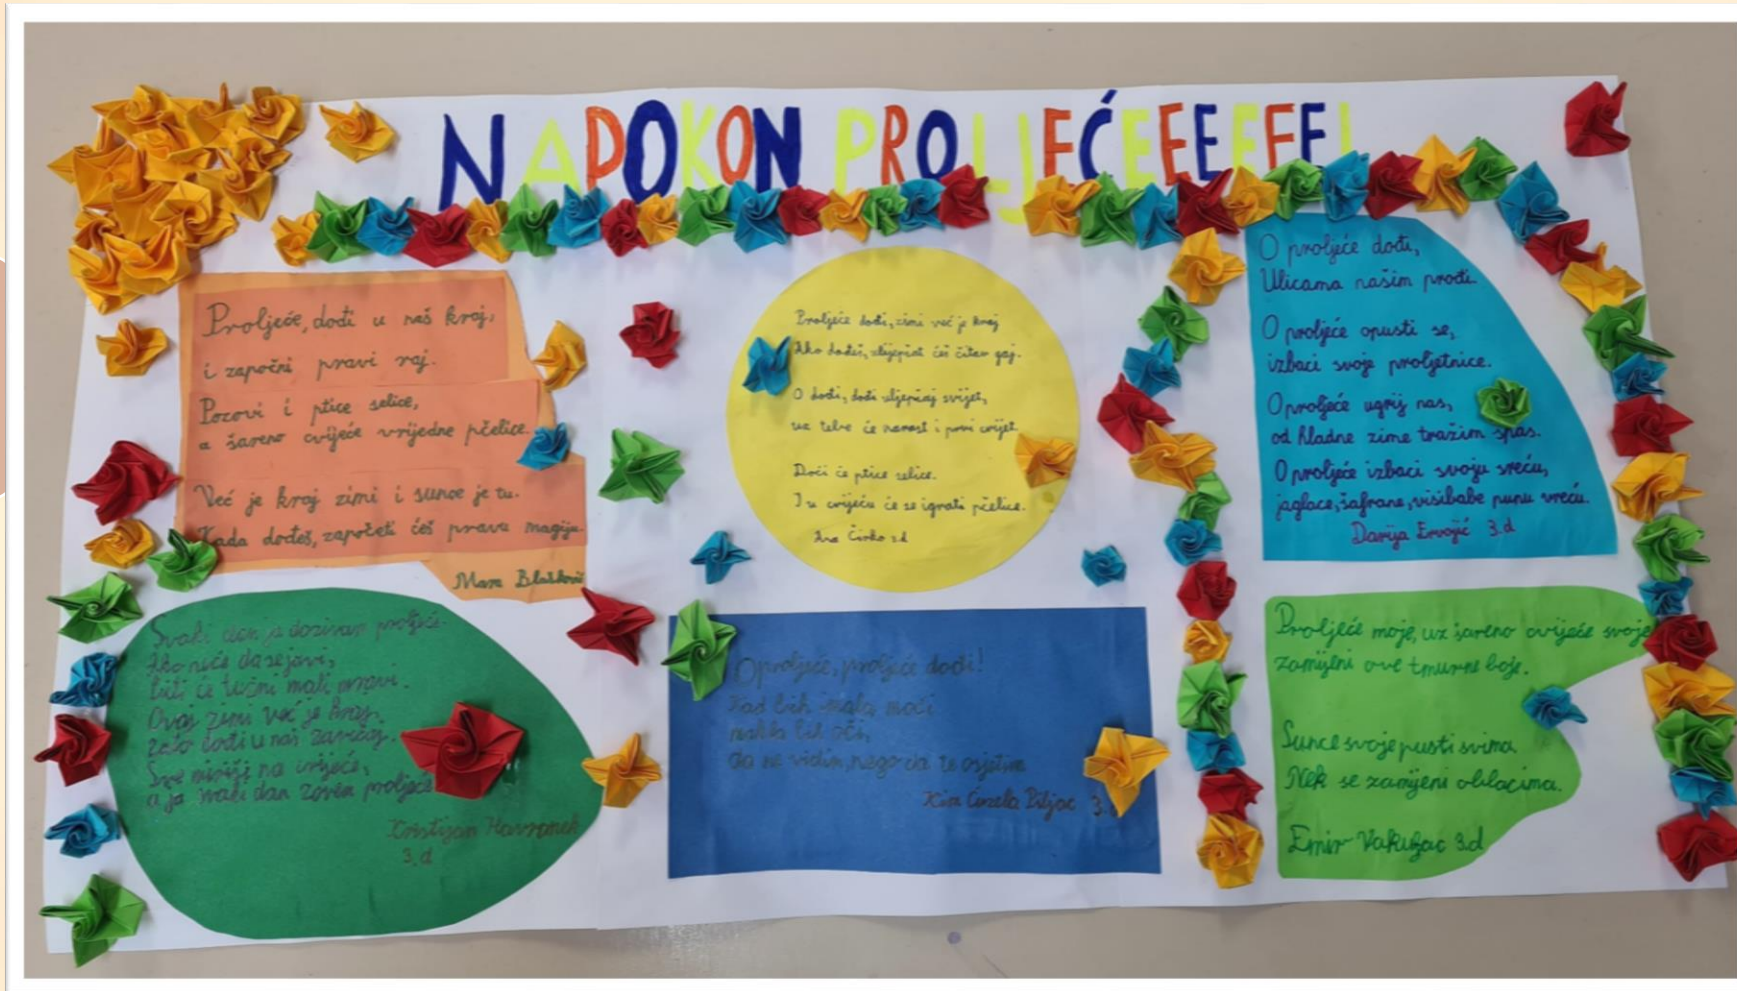 NAPOKON PROLJEĆEEEEEE!
Proljeće, dođi u naš kraj,
i započni pravi raj.
Pozovi i ptice selice,
a šareno cvijeće vrijedne pčelice.
Već je kraj zimi i sunce je tu.
Kada dođeš, započeti ćeš pravu magiju.
Mara Blašković
Proljeće dođi, zimi već je kraj
Ako dođeš, uljepšat ćeš čitav gaj.
O dođi, dođi uljepšaj svijet,
uz tebe će narast i prvi cvijet.
Doći će ptice selice.
I u cvijeću će se igrati pčelice.
Ana Čirko 3.d
O proljeće dođi,
Ulicama našim prođi.
O proljeće opusti se,
izbaci svoje proljetnice.
O proljeće ugrij nas,
od hladne zime tražim spas.
O proljeće izbaci svoju sreću,
jaglace, šafrane, visibabe punu vreću.
Darija 3.d
Svaki dan ja dozivam proljeće.
Ako neće da se javi,
biti će tužni mali mravi.
Ovoj zimi već je kraj,
zato dođi u naš zavičaj.
Sve miriši na cvijeće,
a ja svaki dan zovem proljeće
Kristijan Havranek
3.d
O proljeće, proljeće dođi!
Kad bih imala moći
rekla bih oči,
da ne vidim, nego da te osjetim
Piljac 3.
Proljeće moje, uz šareno cvijeće svoje
zamijeni ove tmurne boje.
Sunce svoje pusti svima
Nek se zamijeni oblacima.
Emir 3.d